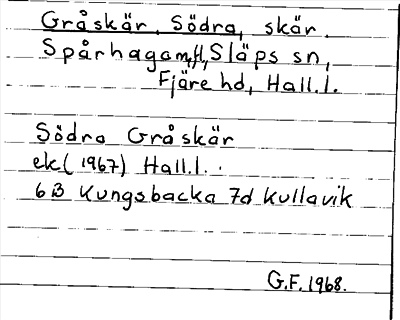 Gråskär, Södra, skär.
Spårhagam,fl, Släps sn,
Fjäre hd, Hall.l.
Södra Gråskär
ek (1967) Hall.l.
6B Kungsbacka 7d Kullavik
G.F. 1968.